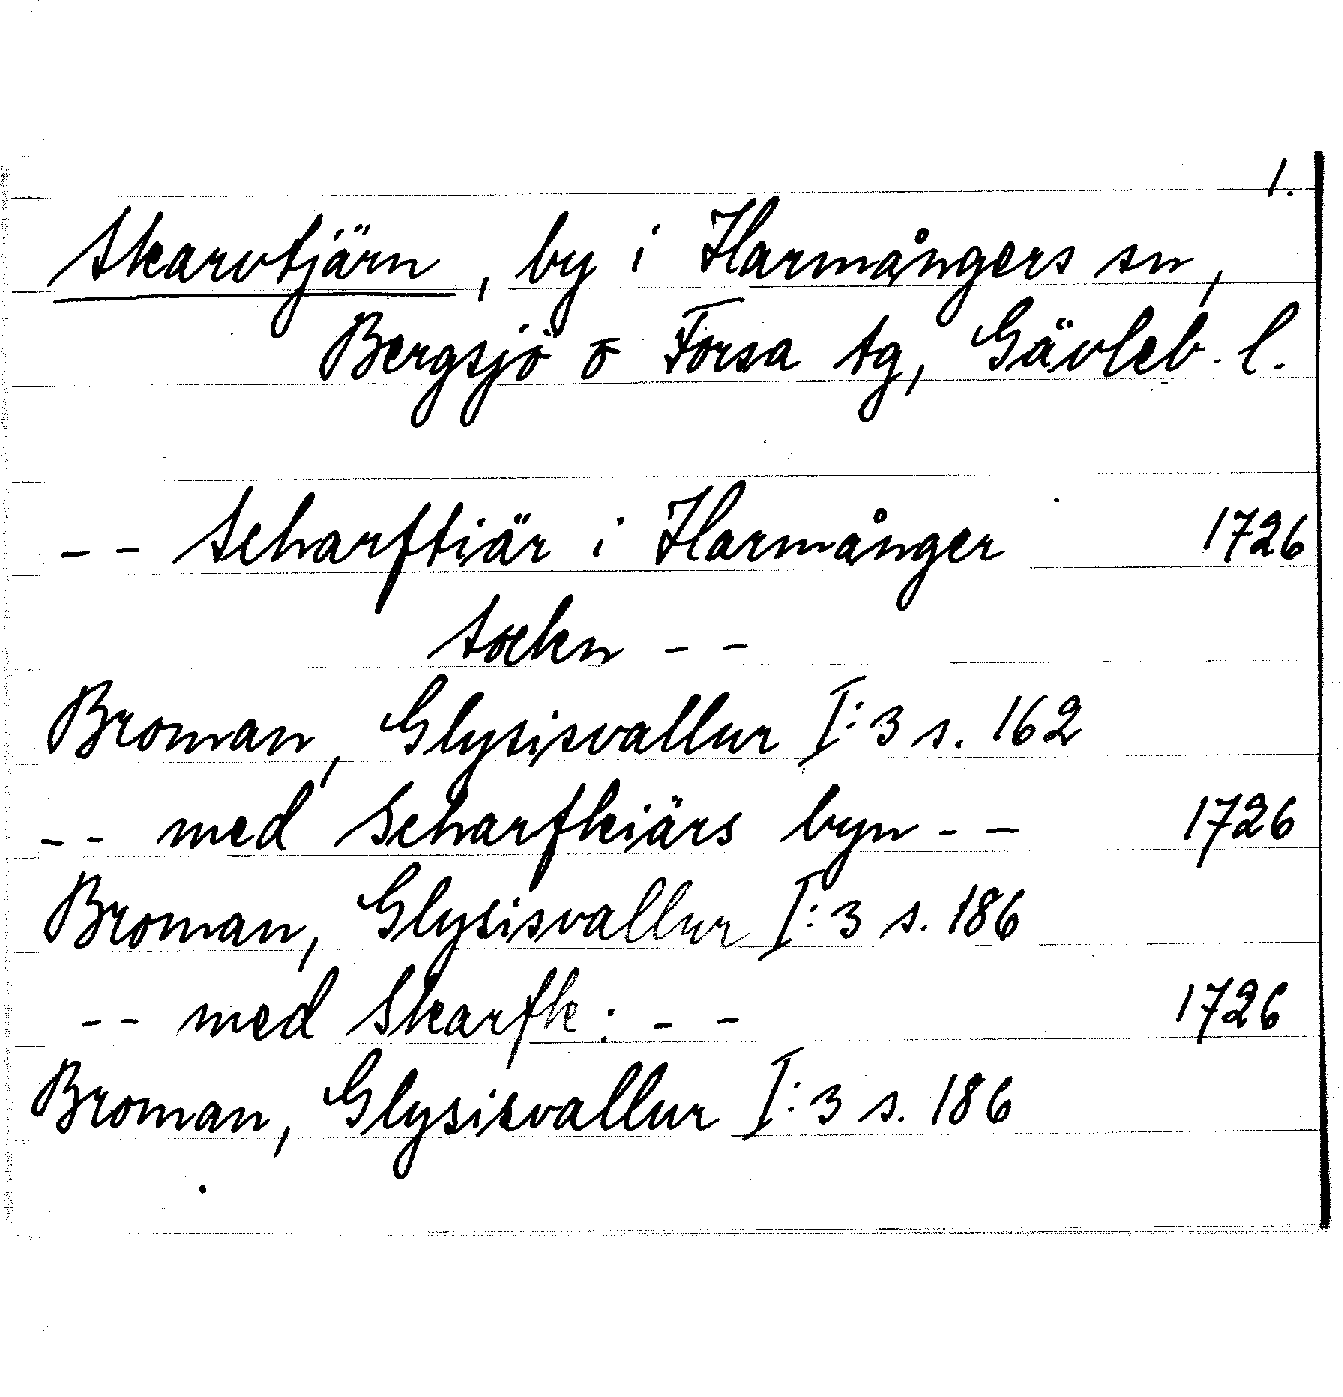 1.
Skarvtjärn, by i Harmångers sn,
Bergsjö o Forsa tg, Gävleb. l.
-- Scharftiär i Harmånger 1726
sockn --
Broman, Glysisvallur I:3 s. 162
-- med Scharfkiärs byn -- 1726
Broman, Glysisvallur I:3 s. 186
-- med Skarfk: -- 1726
Broman, Glysisvallur I:3 s. 186